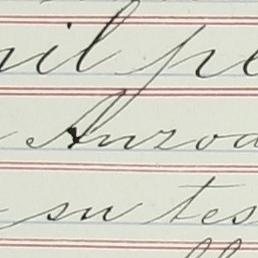 mil pe
Anzoa
su tes